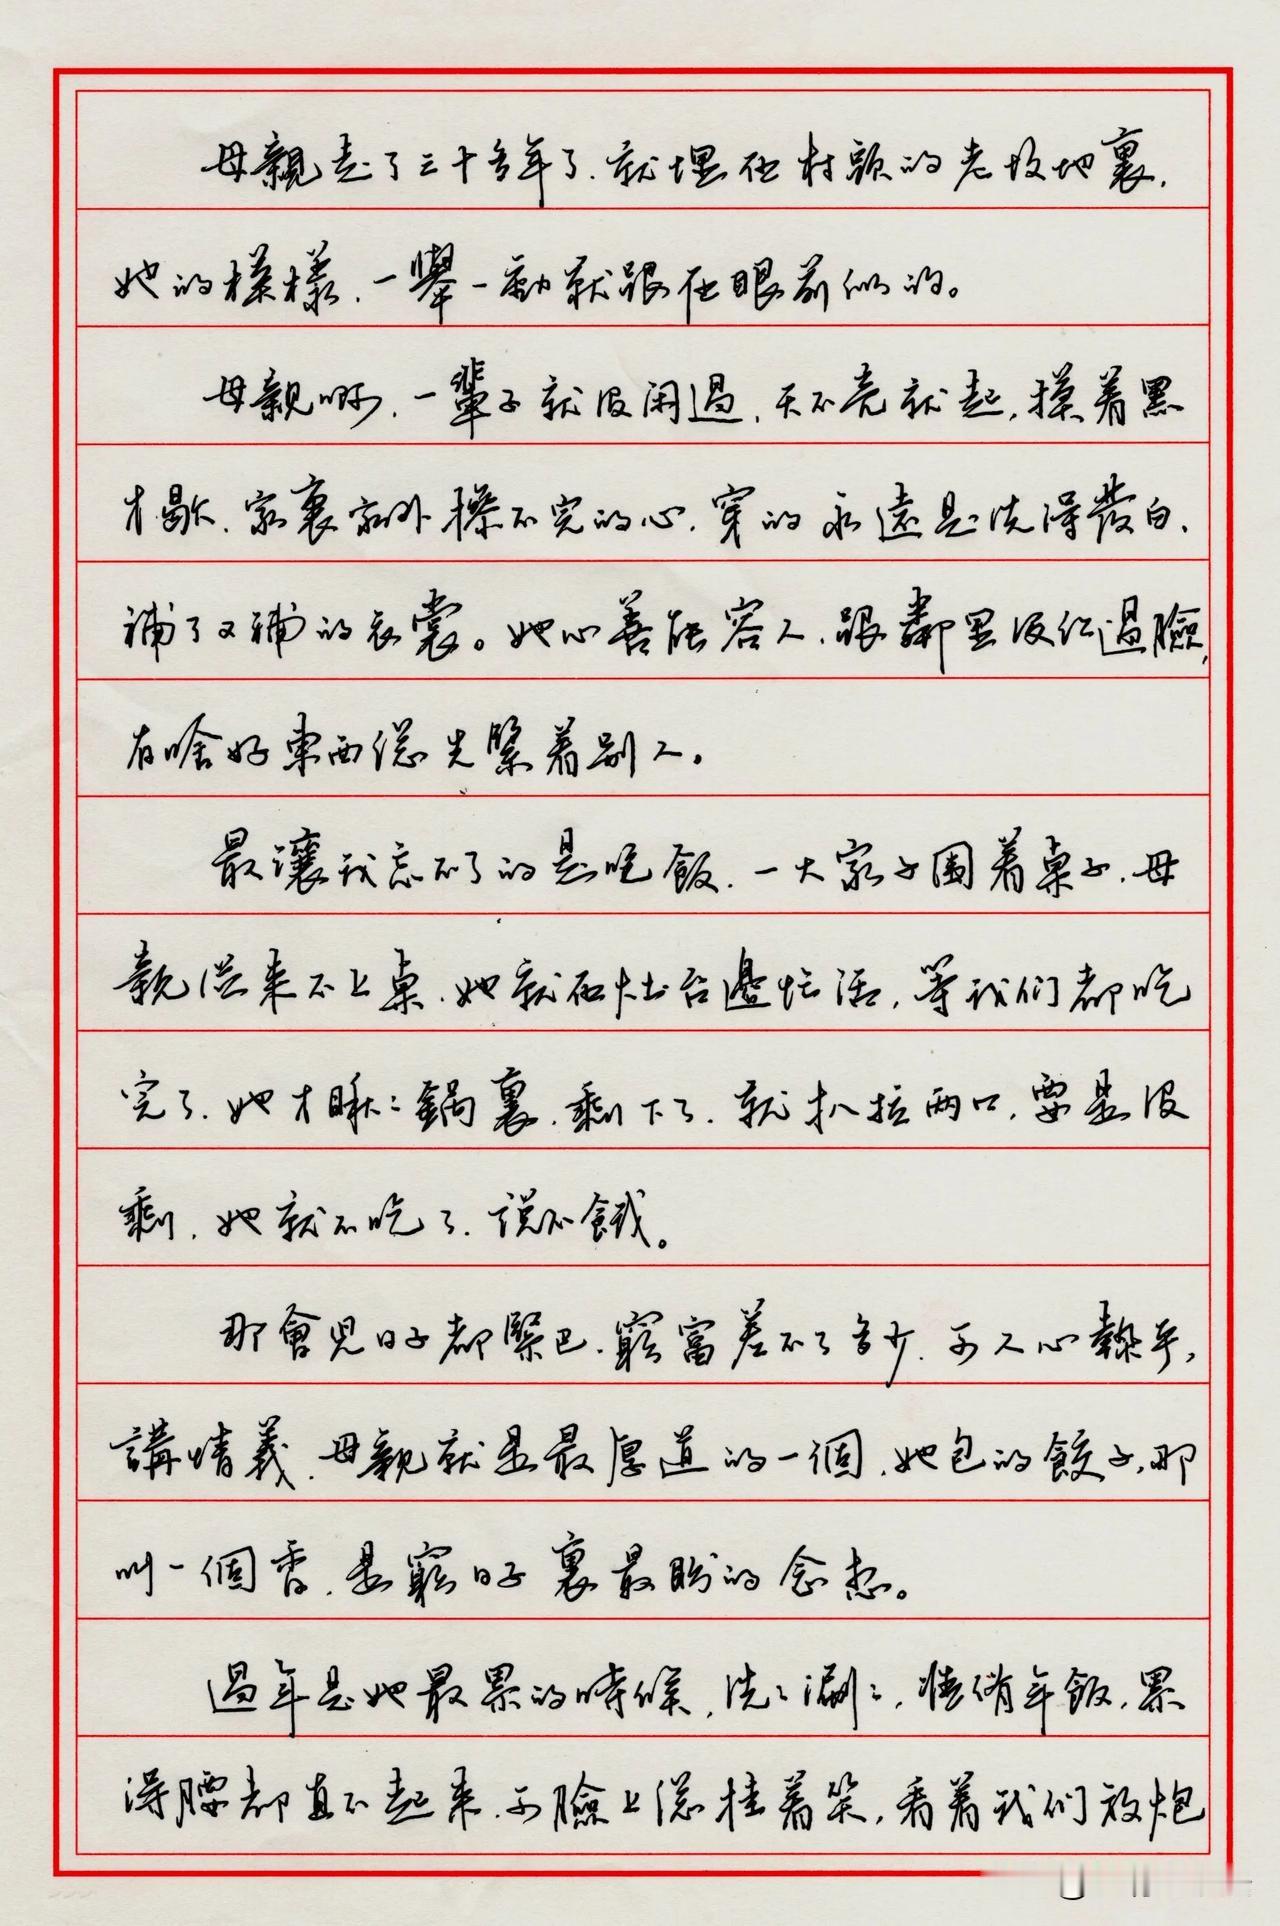 母親走了三十多年了.就埋在村頭的老墳地裏.
她的模樣.一舉一動就跟在眼前似的。
母親啊.一輩子就沒閑過.天不亮就起.摸着黑
才歇.家裏家外操不完的心.穿的永遠是洗得發白.
補了又補的衣裳。她心善能容人.跟鄰里沒紅過臉,
有啥好東西總先緊着别人。
最讓我忘不了的是吃飯.一大家子圍着桌子.母
親從来不上桌.她就在灶台邊忙活,等我们都吃
完了.她才瞅:鍋裏.剩下了.就扒拉两口.要是沒
剩.她就不吃了.說不餓。
那會兒日子都緊巴.窮富差不了多少.可人心熱乎,
講情義.母親就是最厚道的一個.她包的餃子.那
叫一個香.是窮日子裏最盼的念想。
過年是她最累的時候.洗:涮:,準備年飯.累
得腰都直不起来.可臉上總挂着笑.看着我们放炮